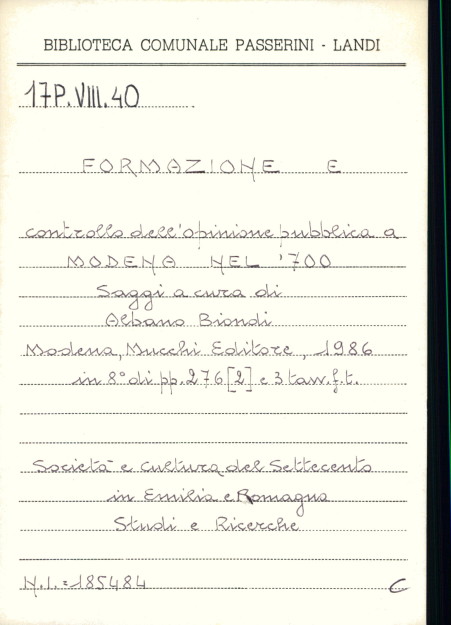 BIBLIOTECA COMUNALE PASSERINI - LANDI
17P.VIII.40
FORMAZIONE E
controllo dell'opinione pubblica a
MODENA NEL '700
Saggi a cura di
Albano Biondi
Modena, Mucchi Editore, 1986
in 8° di pp. 276 [2] e 3 tavv. f.t.
Società e Cultura del Settecento
in Emilia e Romagna
Studi e Ricerche
N.I. = 185484
C